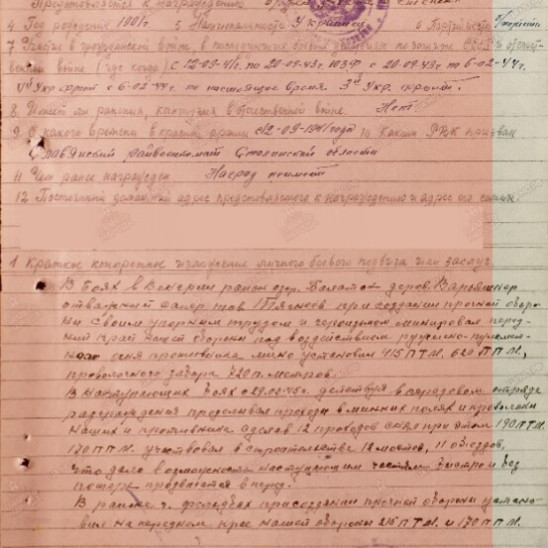 Представляется к награждению
4. Год рождения 1901 г. 5 Национальность Украинец 6 Партийность
7 Участие в гражданской войне, в последующих боевых действиях по защите СССР и отечест-
венной войне (где когда) с 12-09-41 г. по 20-09-43г. ЮЗФ с 20-09-43г по 6-02-44г.
4й Укр фронт с 6-02-44г. по настоящее время 3й Укр. фронт.
8 Имеет ли ранения, контузия в отечественной войне Нет
9 С какого времени в красной армии с 12-09-1941 года 10 Каким РВК призван
Славянский райвоенкомат Сталинской области
11 Чем ранее награжден Наград не имеет
12 Постоянный домашний адрес представляемого к награждению и адрес его семьи
1 Краткое конкретное изложение личного боевого подвига или заслуг
В боях в Венгрии район озр. Балатон дерев.
отважный сапер тов при создании прочной оборо-
ни своим упорным трудом и героизмом минировал перед-
ний край нашей обороны под воздействием ружейно-пулемет-
ного огня противника лично установил 415 ПТМ, 620 ППМ,
проволочного забора 720 п. метров.
В наступающих боях действуя в передовом отряде
заграждения проделывал проходы в минных полях и проволоки
наших и противника сделал 12 проходов снял при этом 190 ПТМ.
170 ППМ. участвовал в строительстве 12 мостов, 11 объездов,
что дало возможность наступающим частям быстро и без
потерь продвигаться вперед.
В районе г. при создании прочной обороны устано-
вил на переднем крае нашей обороны 215 ПТМ. и 170 ППМ.